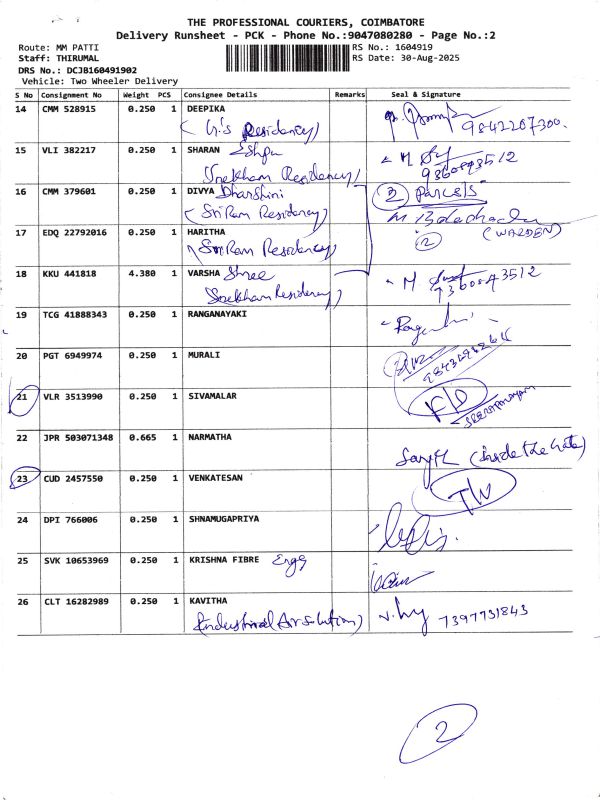 THE PROFESSIONAL COURIERS, COIMBATORE
Delivery Runsheet - PCK - Phone No.:9047080280 - Page No.:2
Route: MM PATTI
RS No.: 1604919
Staff: THIRUMAL
RS Date: 30-Aug-2025
DRS No.: DCJB160491902
Vehicle: Two Wheeler Delivery
S No Consignment No Weight PCS Consignee Details Remarks Seal & Signature
14 CMM 528915 0.250 1 DEEPIKA
Residency) 9842207300.
15 VLI 382217 0.250 1 SHARAN
Residency)
16 CMM 379601 0.250 1 DIVYA Dharshini 2 Parcels
(Sri Ram Residency)
17 EDQ 22792016 0.250 1 HARITHA 2 (WARDEN)
(Sri Ram Residency)
18 KKU 441818 4.380 1 VARSHA Shree
Residency)
19 TCG 41888343 0.250 1 RANGANAYAKI
20 PGT 6949974 0.250 1 MURALI
21 VLR 3513990 0.250 1 SIVAMALAR
22 JPR 503071348 0.665 1 NARMATHA
(inside the Gate)
23 CUD 2457550 0.250 1 VENKATESAN
24 DPI 766006 0.250 1 SHNAMUGAPRIYA
25 SVK 10653969 0.250 1 KRISHNA FIBRE Engg
26 CLT 16282989 0.250 1 KAVITHA
(Industrial Air Solution) 7397731843
2